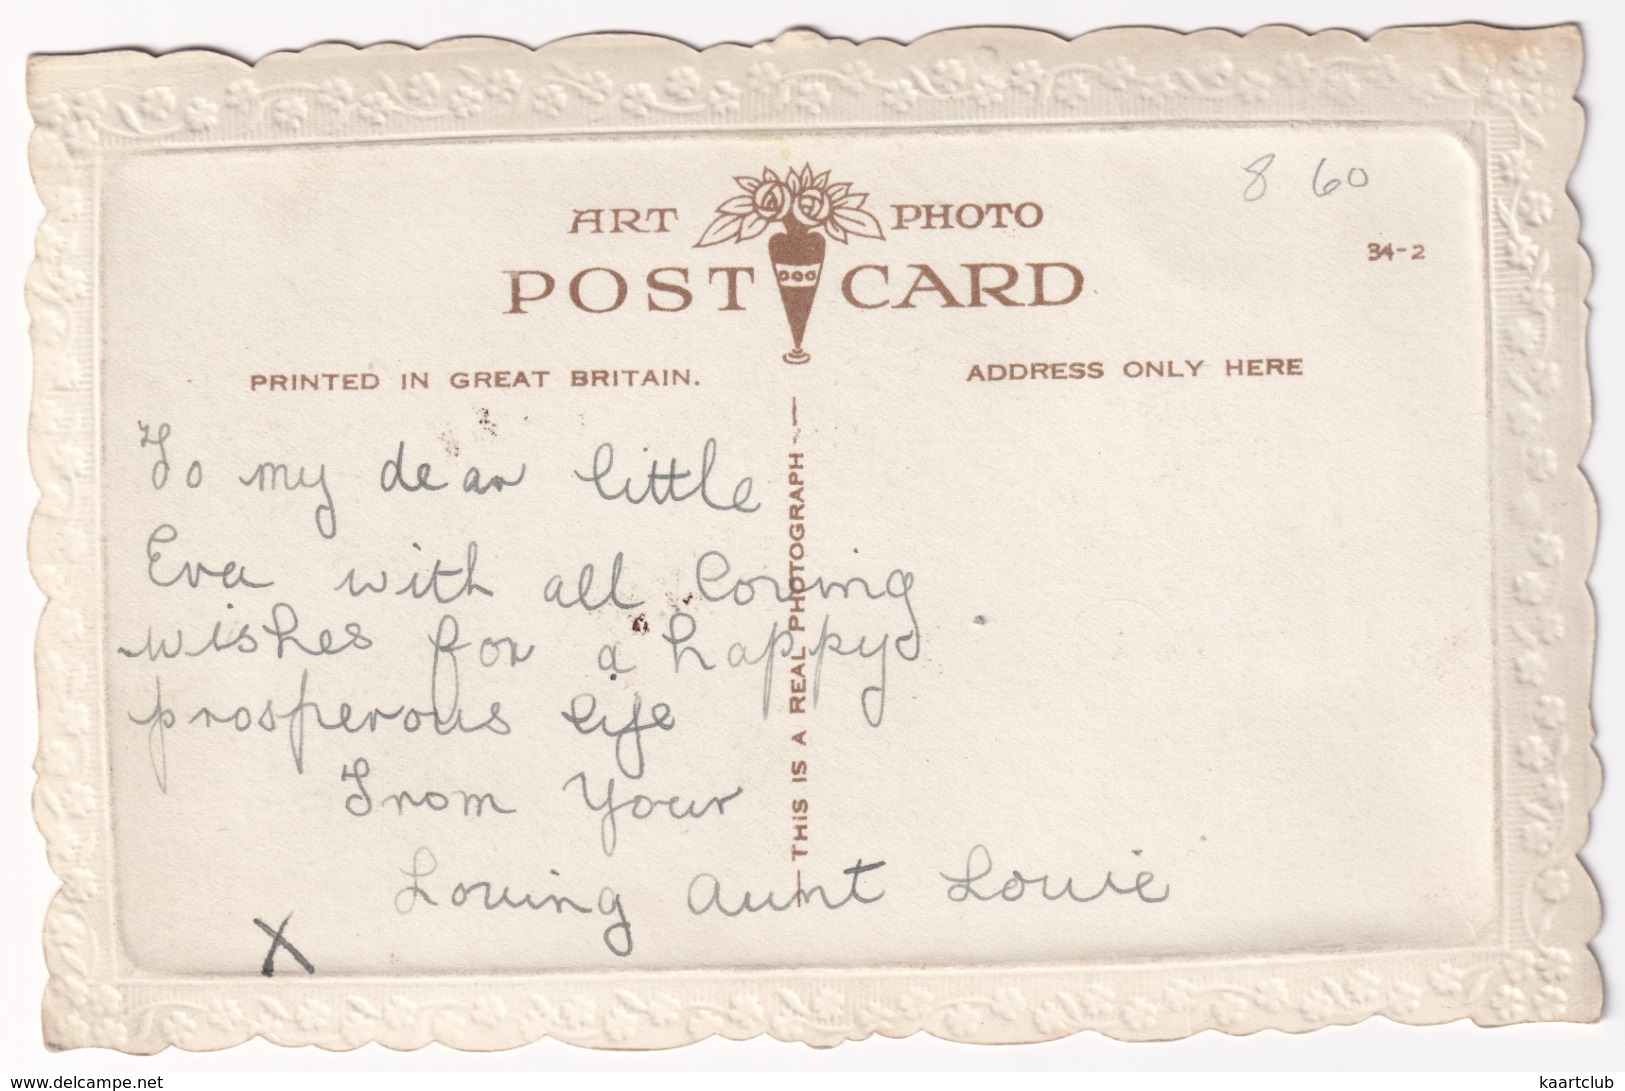 8 60
ART PHOTO
34-2
POST CARD
PRINTED IN GREAT BRITAIN.
ADDRESS ONLY HERE
To my dear little
Eva with all loving
wishes for a happy
prosperous life
From Your
Loving Aunt Louie
X
THIS IS A REAL PHOTOGRAPH
www.delcampe.net
kaartclub